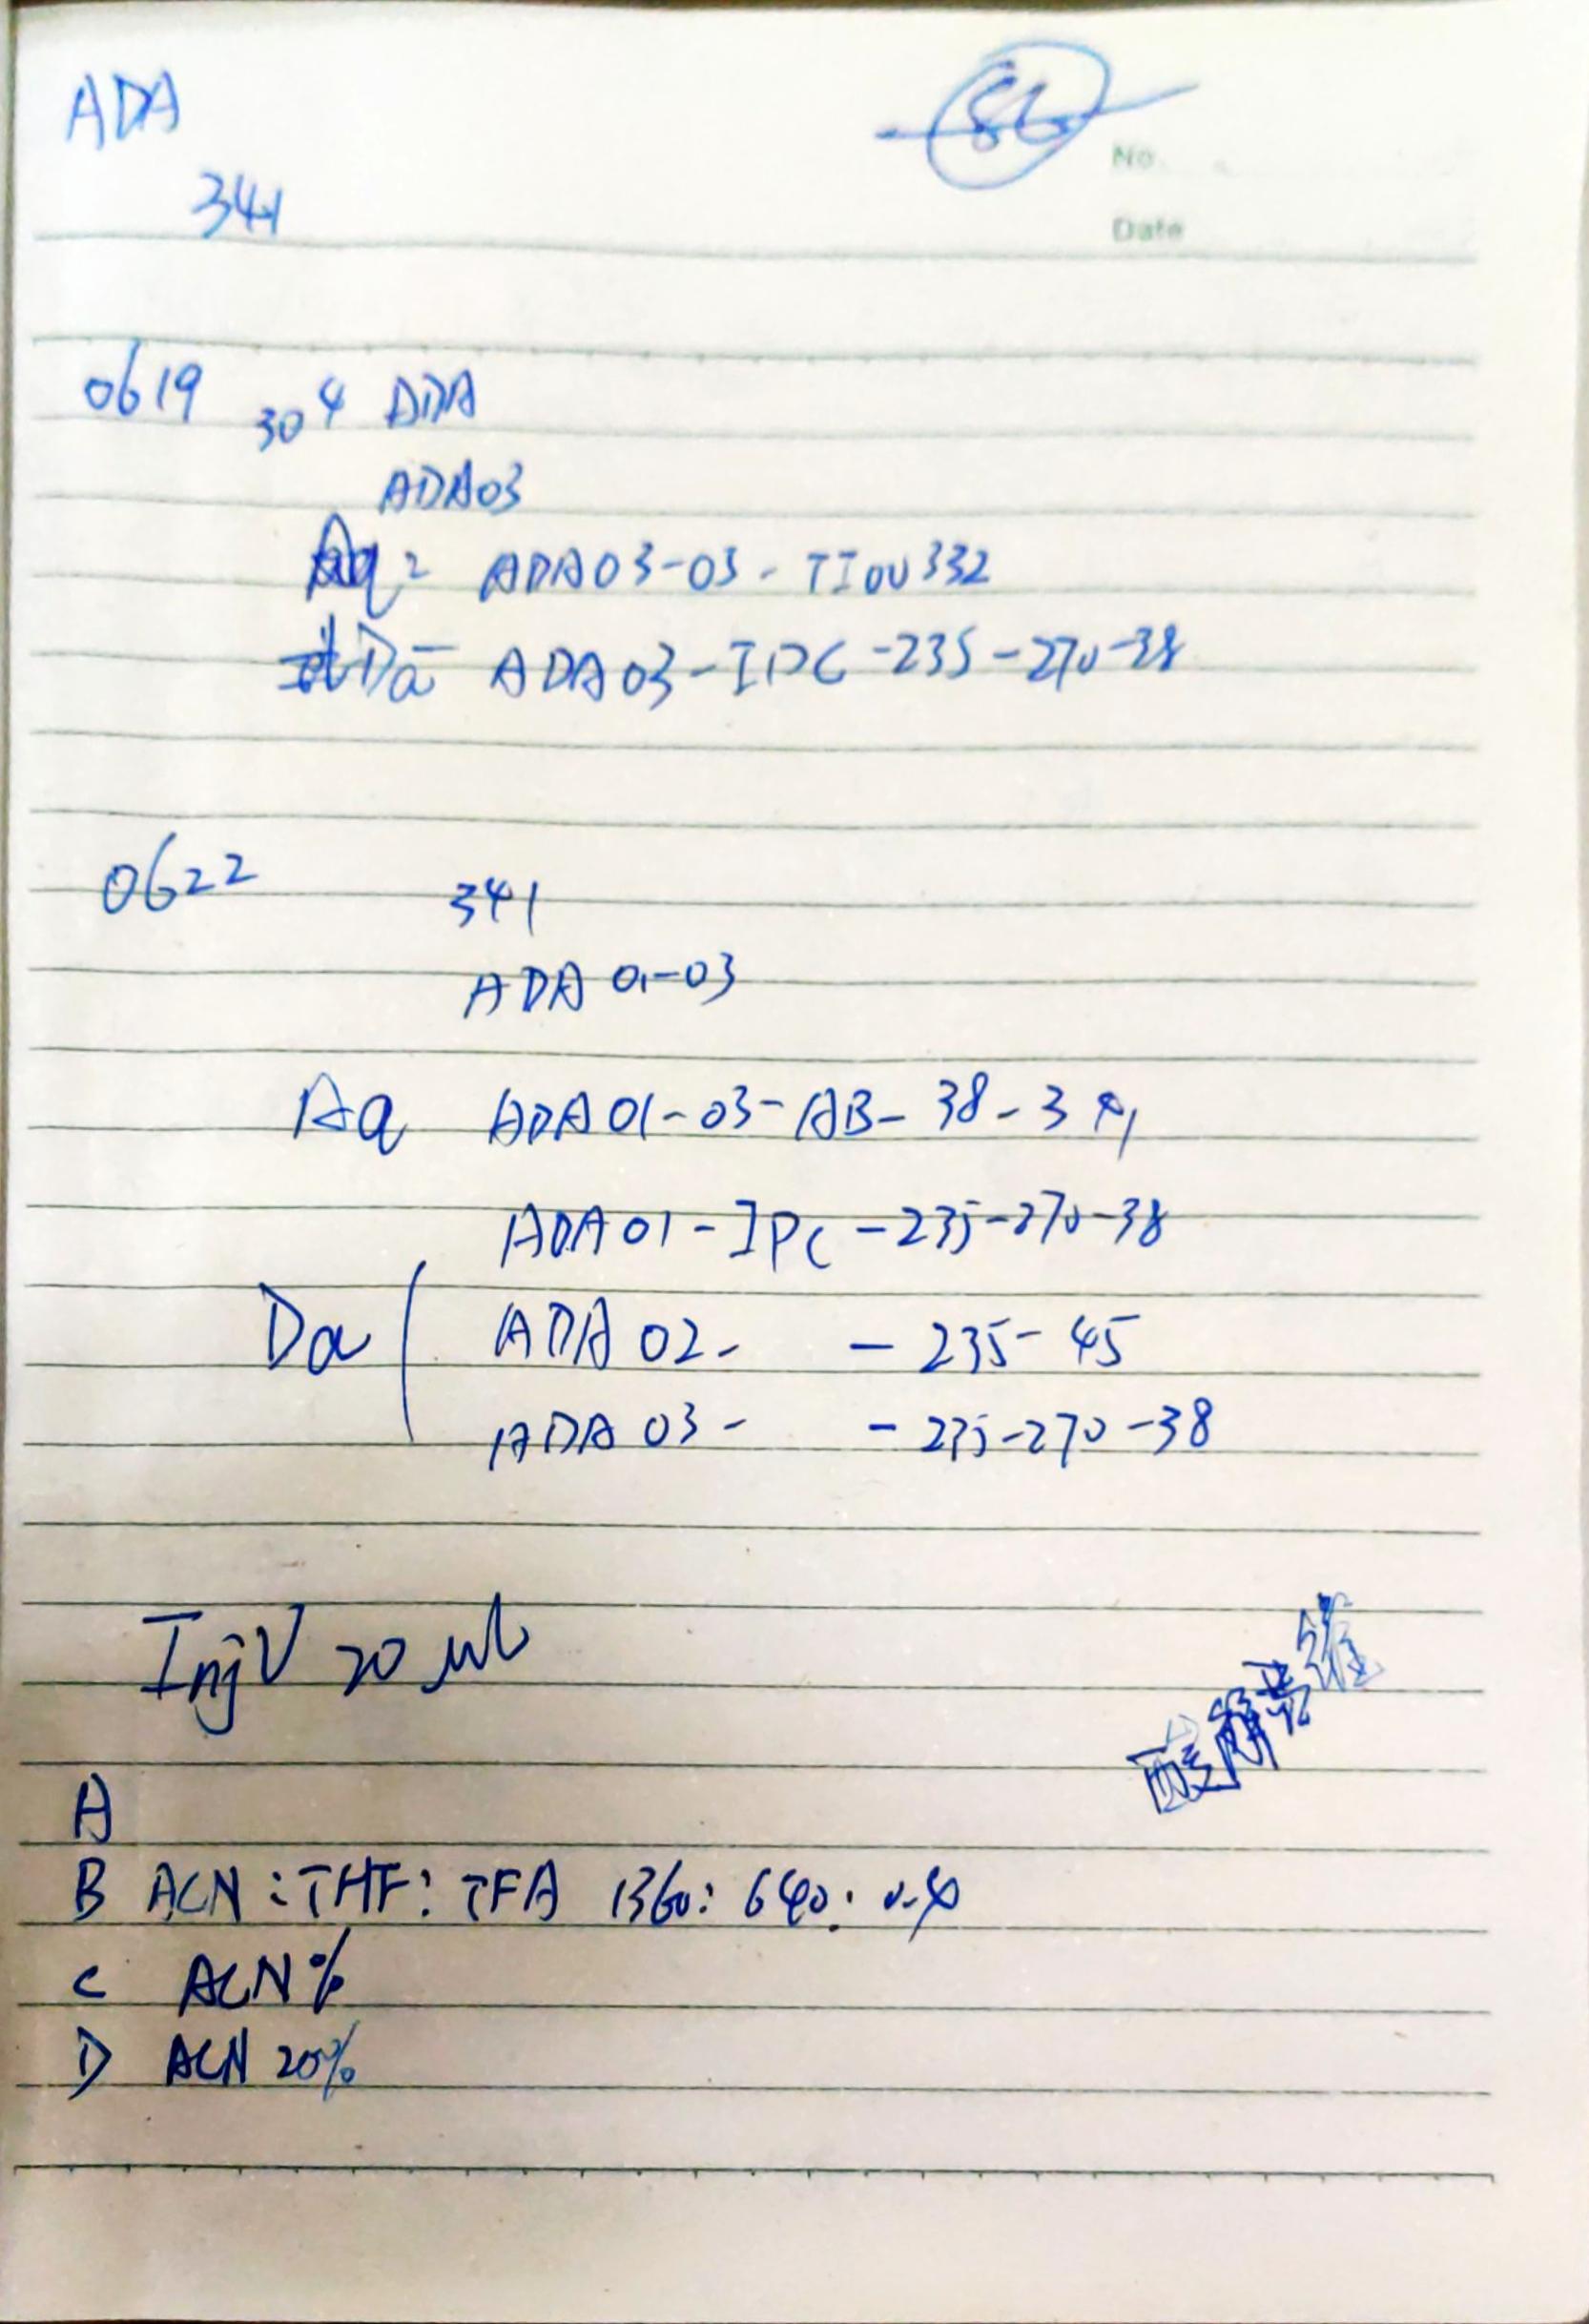 ADA
341
No.
Date
0619 304 ADA
ADA03
Aq: ADA03-03-TI00332
Da- ADA03-IPC-235-270-38
0622
341
ADA 01-03
Aq ADA01-03-AB-38-341
ADA01-IPC-235-270-38
Da ADA 02- -235-45
ADA 03- -235-270-38
InjV 20 ul
A
B ACN:THF:TFA 1360:640:0.4
C ACN%
D ACN 20%